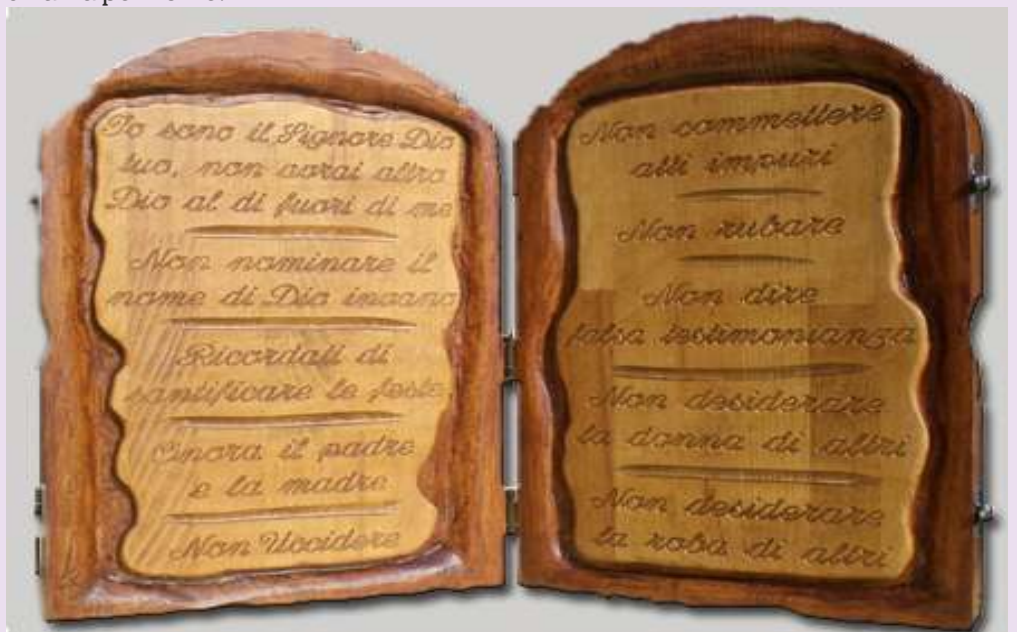 Io sono il Signore Dio
tuo, non avrai altro
Dio al di fuori di me
Non nominare il
nome di Dio invano
Ricordati di
santificare le feste
Onora il padre
e la madre
Non Uccidere
Non commettere
atti impuri
Non rubare
Non dire
falsa testimonianza
Non desiderare
la donna di altri
Non desiderare
la roba di altri